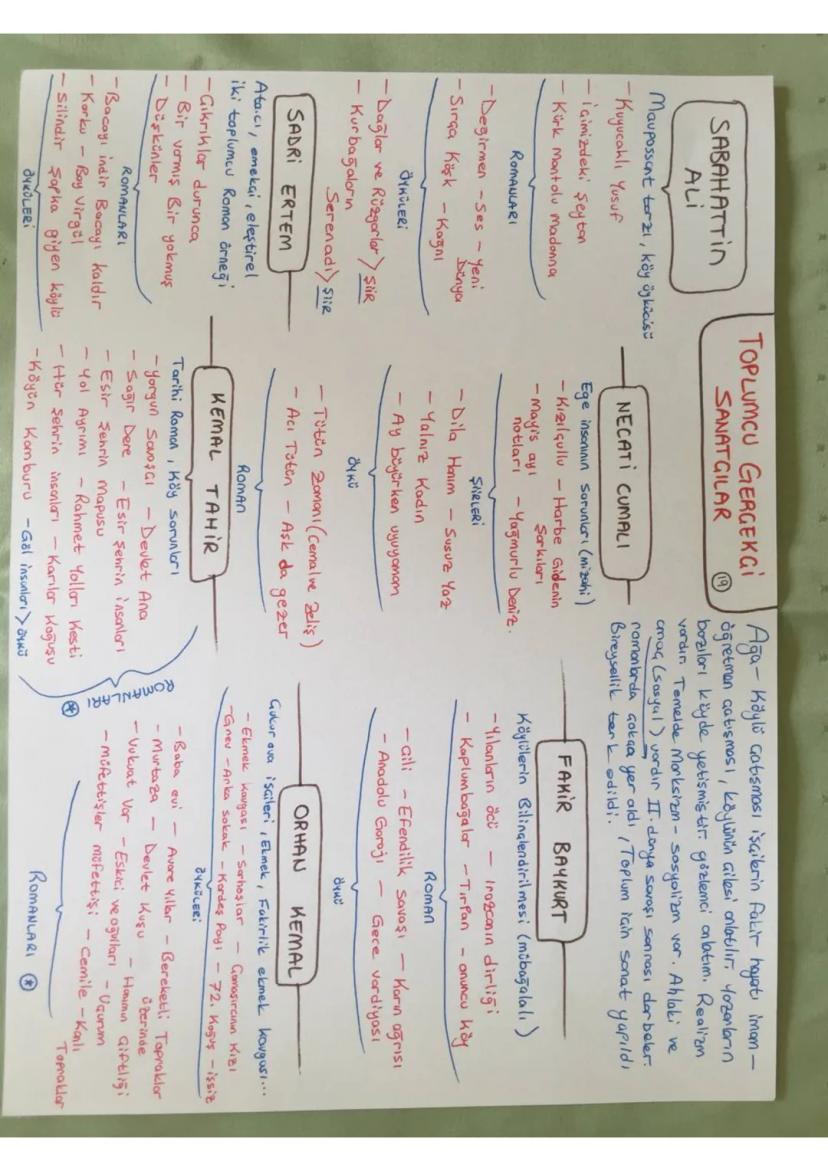 TOPLUMCU GERÇEKÇİ
SANATÇILAR
19
Ağa – Köylü çatışması işçilerin fakir hayatı imam –
öğretmen çatışması, köylünün çilesi anlatılır. Yazarların
bazıları köyde yetişmiştir. gözlemci anlatım. Realizm
vardır. Temelde Marksizm – sosyalizm var. Ahlaki ve
amaç (sosyal) vardır II. dünya savaşı sonrası darbeler.
romanlarda çokça yer aldı, Toplum için sanat yapıldı
Bireysellik terk edildi.
SABAHATTİN
ALİ
Maupossant tarzı, köy öykücüsü
– Kuyucaklı Yusuf
– İçimizdeki Şeytan
– Kürk Mantolu Madonna
ROMANLARI
– Değirmen – Ses – Yeni
Dünya
– Sırça Köşk – Kağnı
ÖYKÜLERİ
– Dağlar ve Rüzgarlar > ŞİİR
– Kurbağaların
Serenadı > ŞİİR
NECATİ CUMALI
Ege insanının sorunları (mizahi)
– Kızılçullu – Harbe Gidenin
Şarkıları
– Mayis ayı
notları – Yağmurlu Deniz.
ŞİİRLERİ
– Dila Hanım – Susuz Yaz
– Yalnız Kadın
– Ay büyürken uyuyamam
ÖYKÜ
– Tütün Zamanı (Cemal ve Zeliş)
– Acı Tütün – Aşk da gezer
ROMAN
FAKİR BAYKURT
Köylülerin Bilinçlendirilmesi (mübağalalı)
– Yılanların öcü – Irazcanın dirliği
– Kaplumbağalar – Tırpan – onuncu köy
ROMAN
– Çilli – Efendilik savaşı – Karın ağrısı
– Anadolu Garajı – Gece vardiyası
ÖYKÜ
SADRİ ERTEM
Ataıcı, emekçi, eleştirel
iki toplumcu Roman örneği
– Çıkrıklar durunca
– Bir varmış Bir yokmuş
– Düşkünler
ROMANLARI
– Bacayı indir Bacayı kaldır
– Korku – Bay Virgül
– Silindir Şapka giyen köylü
ÖYKÜLERİ
KEMAL TAHİR
Tarihi Roman, Köy sorunları
– Yorgun Savaşçı – Devlet Ana
– Sağır Dere – Esir Şehrin insanları
– Esir Şehrin Mapusu
– Yol Ayrımı – Rahmet Yolları Kesti
– Hür Şehrin insanları – Karılar Koğuşu
– Köyün Kamburu – Göl insanları > öykü
ROMANLARI
ORHAN KEMAL
Çukur ova işçileri, Ekmek, Fakirlik ekmek kavgası...
– Ekmek kavgası – Sarhoşlar – Çamaşırcının Kızı
– Grev – Arka sokak – Kardeş Payı – 72. Koğuş – işsiz
ÖYKÜLERİ
– Baba evi – Avare Yıllar – Bereketli Topraklar
Üzerinde
– Murtaza – Devlet Kuşu – Hanımın Çiftliği
– Vukuat Var – Eskici ve oğulları – Uçurum
– Müfettişler müfettişi – Cemile – Kanlı
Topraklar
ROMANLARI